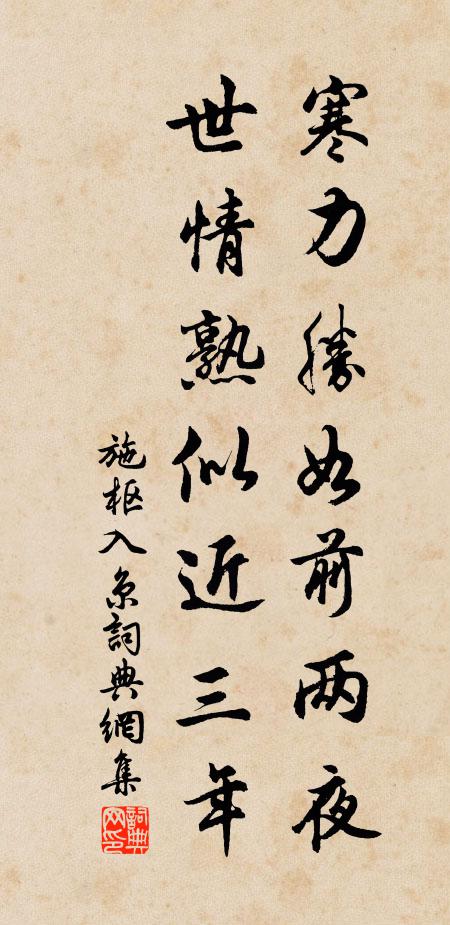 寒力勝如前两夜
世情熟似近三年
施枢入京詞典網集
詞典网印